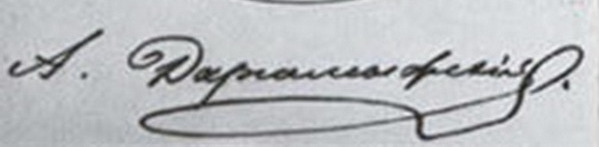 А. Даргомыжский.